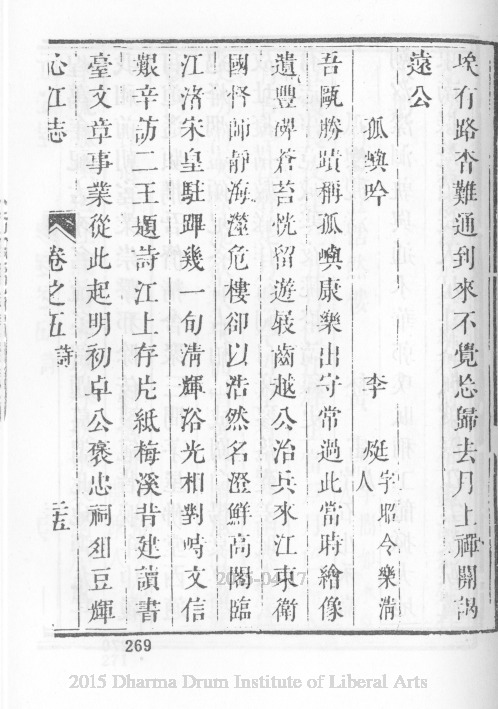 埃有路杳難通到來不覺忘歸去月上禪關謁
遠公
孤嶼吟 李 烶字昭令樂清人
吾甌勝蹟稱孤嶼康樂出守常過此當時繪像
遺豐碑蒼苔恍留遊屐齒越公治兵來江東衛
國督師靜海澨危樓卻以浩然名澄鮮高閣臨
江渚宋皇駐蹕幾一旬清輝浴光相對峙文信
艱辛訪二王題詩江上存片紙梅溪昔建讀書
臺文章事業從此起明初卓公褒忠祠俎豆輝
心江志 卷之五 詩 三五
269
2015-04-17
2015 Dharma Drum Institute of Liberal Arts